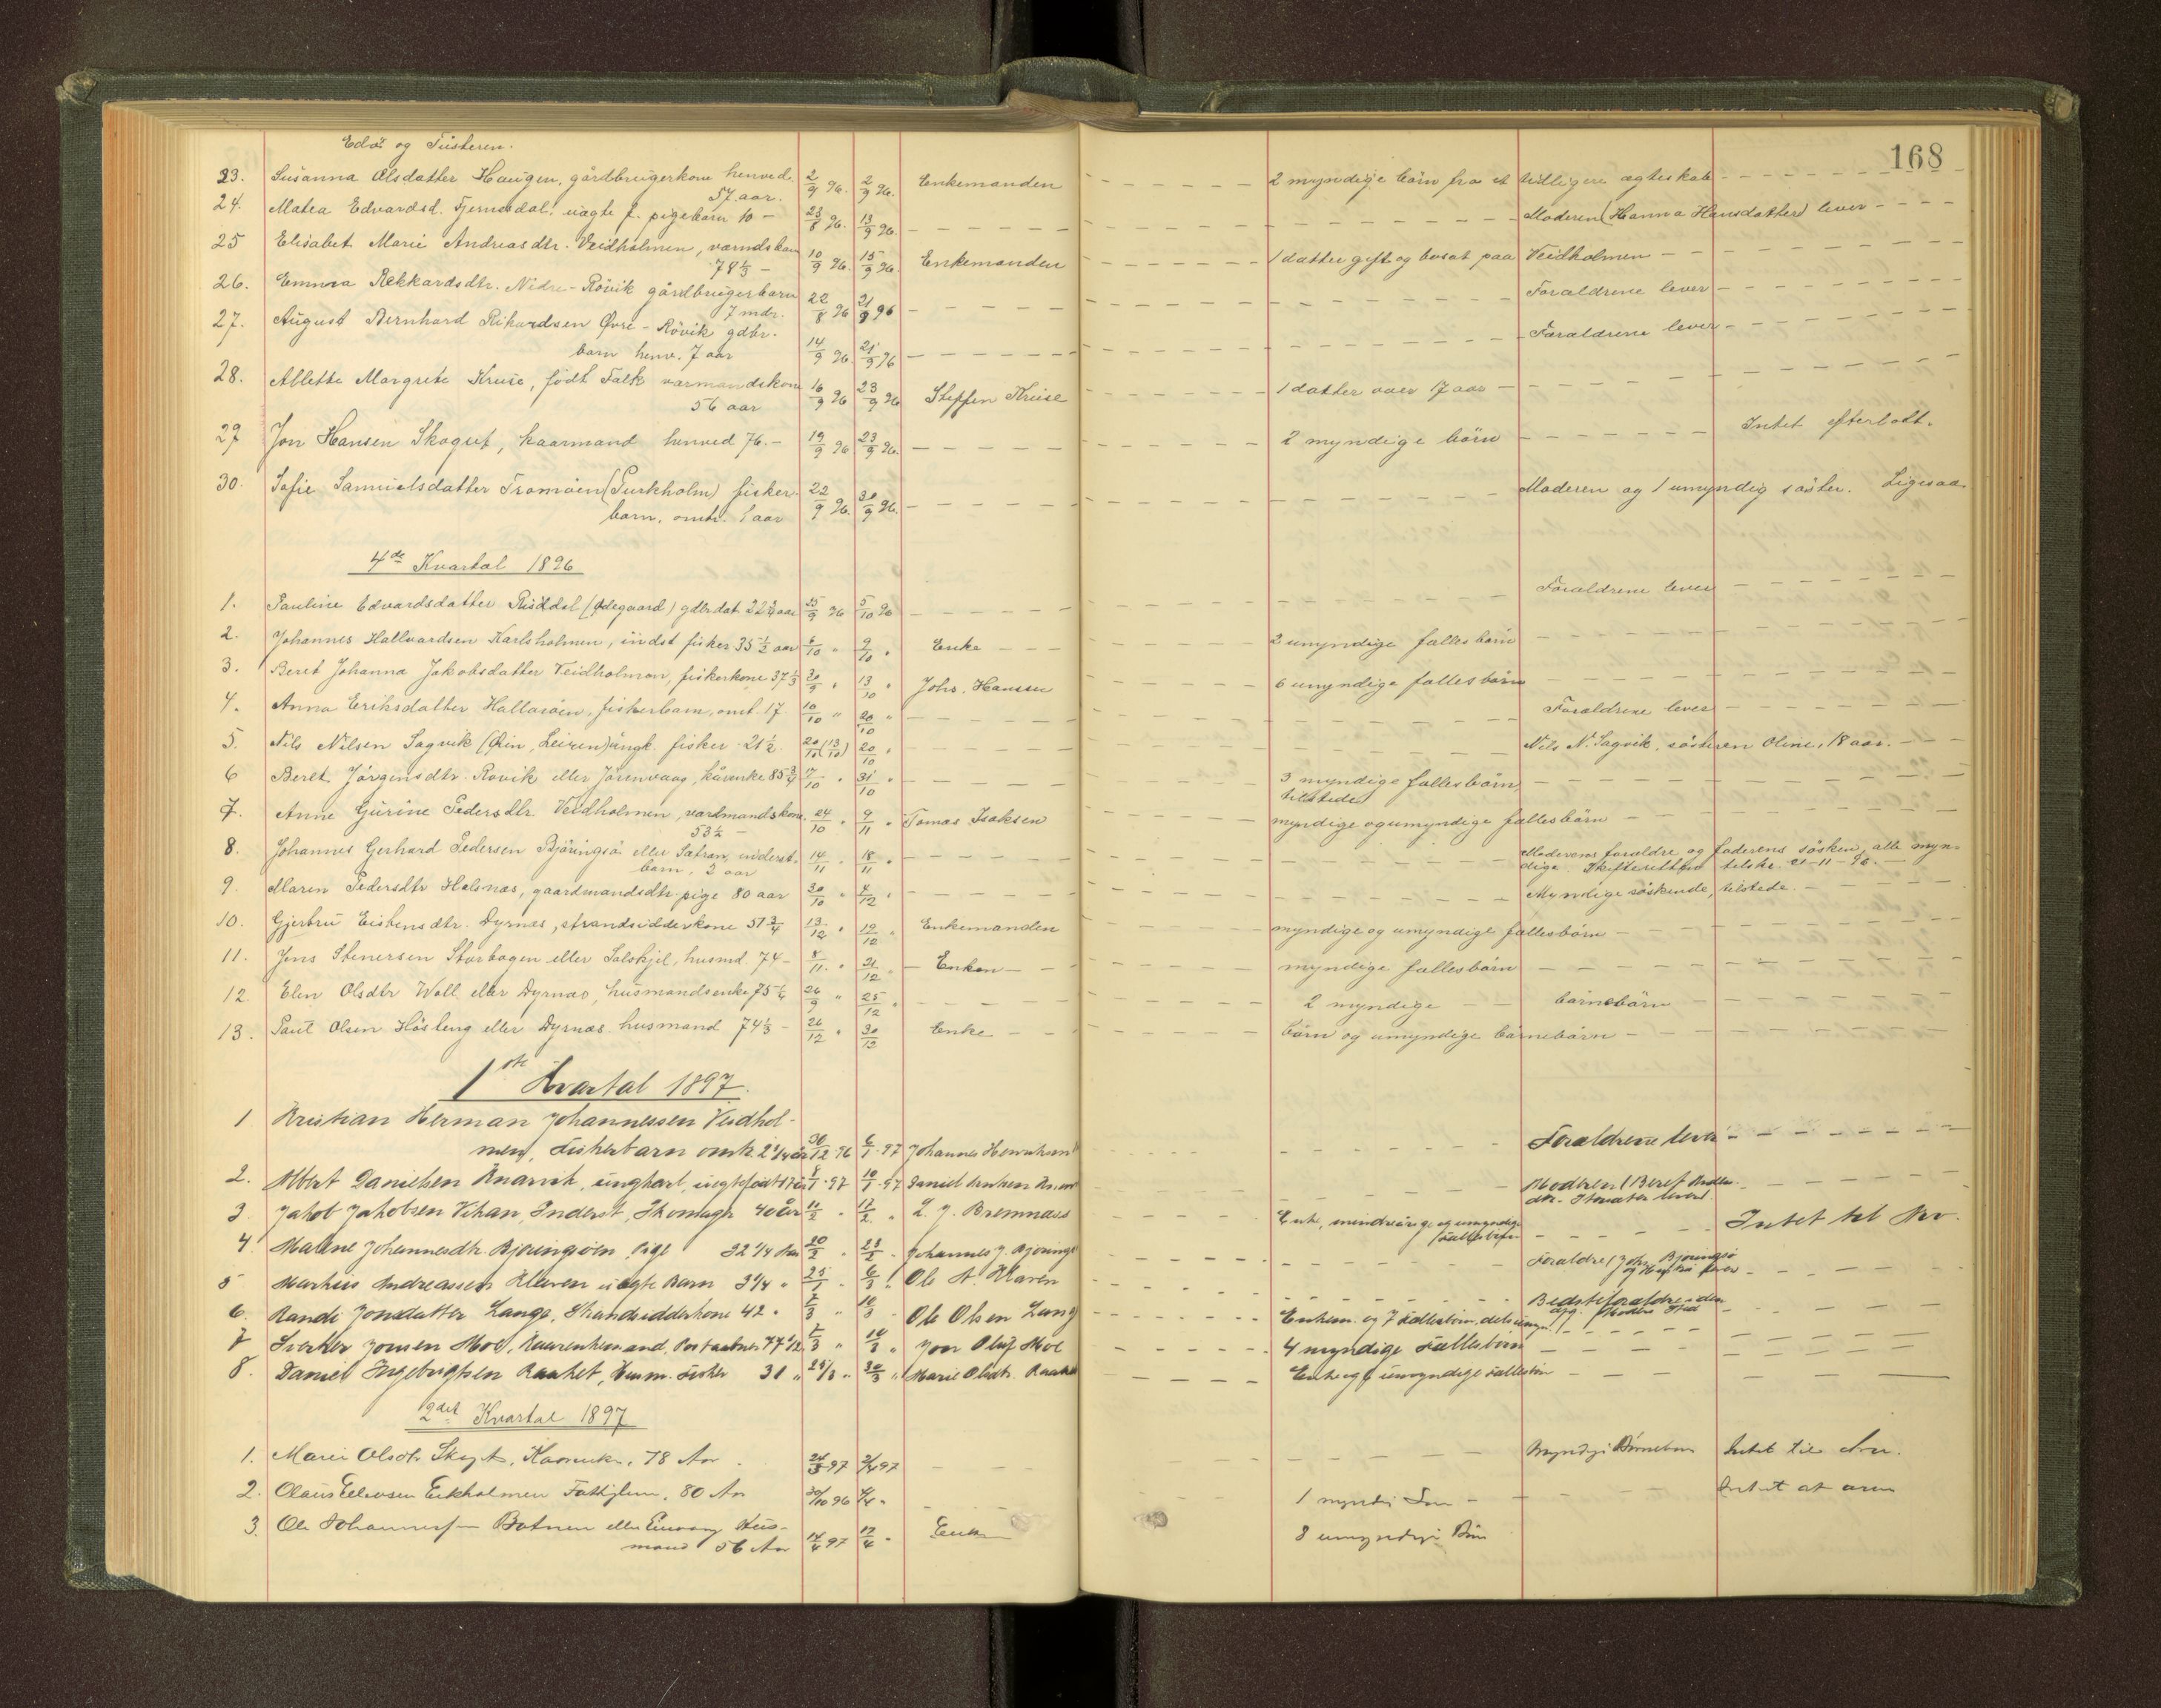 168
Edö og Tusteren.
23. Susanna Olsdatter Haugen, gårdbrugerkone henved. 2/9 96. 2/9 96. Enkemanden 2 myndige börn fra et tidligere ægteskab
57 aar.
24. Matea Edvardsd. uægte f. pigebarn 10 - 23/8 96. 13/9 96. Moderen (Hanna Hansdatter) lever
25 Elisabet Marie Andreasdtr. Veidholmen, 10/9 96. 15/9 96. Enkemanden 1 datter gift og bosat paa Veidholmen
78 1/3 -
26. Emma Rekkardsdtr. Nedre-Rövik gårdbrugerbarn 22/8 96 21/9 96 Forældrene lever
7 mdr.
27. August Bernhard Rikardsen Øvre-Rövik gdbr. Forældrene lever
barn henv. 7 aar 14/9 96. 21/9 96
28. Ablette Margrete Kruse, født Falk varmandskone 16/9 96 23/9 96 Steffen Kruse 1 datter over 17 aar
56 aar
29 Jon Hansen Skogset, kaarmand henved 76. - 19/9 96 23/9 96. 2 myndige börn Intet efterladt.
30. Sofie Samuelsdatter Tromöen (Purkholm) fisker- 22/9 96. 30/9 96. Moderen og 1 umyndig söster. Ligesaa
barn, omtr. 1 aar
4de Kvartal 1896
1. Pauline Edvardsdatter (Ødegaard) gdbrdat 22 3/4 aar 25/9 96 5/10 96 Forældrene lever
2. Johannes Hallvardsen Karlsholmen, indst fisker 35 1/2 aar 6/10 " 9/10 " Enke 2 umyndige fællesbörn
3. Beret Johanna Jakobsdatter Veidholmen, fiskerkone 37 1/3 30/9 " 13/10 " Johs. Hansen 6 umyndige fællesbörn
4. Anna Eriksdatter Hallaröen, fiskerbarn, omt. 17 10/10 " 20/10 " Forældrene lever
5. Nils Nilsen Sagvik (Øien, Leiren) ungk. fisker 21 1/2 20/10 (13/10) 20/10 " Nils N. Sagvik, sösteren Oline, 18 aar.
6 Beret Jörgensdtr. Rovik eller Jörenvaag, kårenke 85 3/4 7/10 " 31/10 " 3 myndige fællesbörn
tilstede
7. Anne Gurine Pedersdtr. Veidholmen, vartmandskone. 24/10 " 9/11 " Tomas Isaksen myndige og umyndige fællesbörn
53 1/2 -
8. Johannes Gerhard Pedersen Björingsö eller Satran, inderst. 14/11 " 18/11 " Moderens forældre og faderens sösken, alle myn-
barn, 2 aar dige. Skifteretten tilskr. 21-11-96.
9. Maren Pedersdtr Halsnæs, gaardmandsdtr pige 80 aar 30/10 " 4/12 " Myndige söskende, tilstede.
10. Gjertru Eistensdtr. Dyrnæs, strandsidderkone 51 3/4 13/12 " 19/12 " Enkemanden myndige og umyndige fællesbörn
11. Jens Stenersen Storhagen eller Solskjel, husmd. 74 - 8/11. " 21/12 " Enken myndige fællesbörn
12. Elen Olsdtr Woll eller Dyrnæs, husmandsenke 75 1/4 26/9 " 25/12 " 2 myndige börnebörn
13. Paul Olsen Hösteng eller Dyrnæs husmand 74 1/3 - 26/12 " 30/12 Enke börn og umyndige börnebörn
1ste Kvartal 1897.
1 Kristian Herman Johannessen Veidhol-
men, Fiskerbarn omtr. 2 1/4 år 30/12 96 6/1 97 Johannes Forældrene lever
2. Albert Danielsen Knarvik, ungkarl, uægtefødt 17 år 8/1 97 10/1 97 Daniel Moderen (Beret
lever)
3 Jakob Jakobsen Vikan, Inderst, Skomager 40 år 11/2 " 17/2. " L. J. Bremnæs Enke, mindreårige og umyndige Intet til Arv.
4 Malene Johannesdtr. Bjøringsöen, Pige 32 1/4 20/2 " 23/2 - Johannes J. Bjøringsö Forældre (Joh. Bjøringsö
lever
5 Markus Andreassen Klaven uægte Barn 3 1/4 " 25/1 - 6/3 Ole A. Klaven Bedsteforældre
6. Randi Jonsdatter Lange, Strandsidderkone 42 " 2/3 " 10/3 Ole Olsen Lang Enkem. og 7 Fællesbörn, dels
7 Sverker Jonsen Moe, 77 1/2 2/3 " 14/3 " Jon Oluf Moe 4 myndige Fællesbörn
8. Daniel Ingebrigtsen Raaket, Husm. Fisker 31 " 25/3 " 30/3 " Marie Olsdtr. Raaket Enke og 6 umyndige Fællesbörn
2det Kvartal 1897
1. Marie Olsdtr. 78 Aar 24/3 97 2/4 97 Myndige Børnebørn Intet til Arv.
2. Olaus Ekholmen Fattiglem, 80 Aar 30/10 96 4/4 " 1 myndig Søn Intet at arve
3. Ole Botnen eller Hus- 14/4 97 17/4 - Enke 8 umyndige Børn
mand 56 Aar